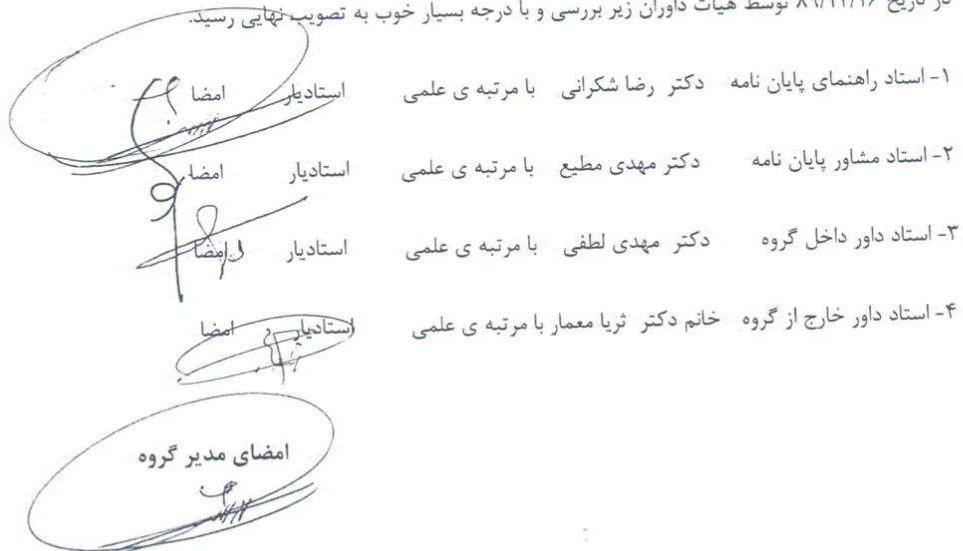 در تاریخ توسط هیات داوران زیر بررسی و با درجه بسیار خوب به تصویب نهایی رسید.
۱- استاد راهنمای پایان نامه دکتر رضا شکرانی با مرتبه ی علمی استادیار امضا
۲- استاد مشاور پایان نامه دکتر مهدی مطیع با مرتبه ی علمی استادیار امضا
۳- استاد داور داخل گروه دکتر مهدی لطفی با مرتبه ی علمی استادیار امضا
۴- استاد داور خارج از گروه خانم دکتر ثریا معمار با مرتبه ی علمی استادیار امضا
امضای مدیر گروه